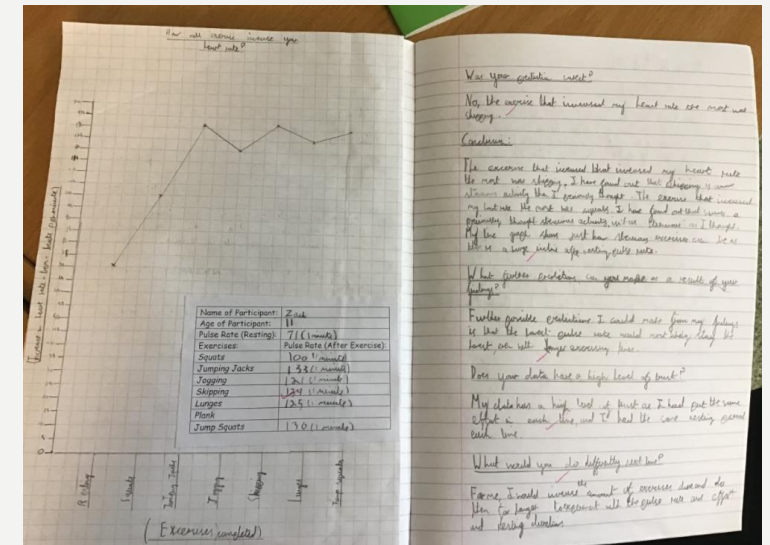 How will exercise increase your
heart rate?
Increase in heart rate - bpm - beats per minute
Resting
Squats
Jumping Jacks
Jogging
Skipping
Lunges
Jump Squats
(Excercises completed)
Name of Participant: Zack
Age of Participant: 11
Pulse Rate (Resting): 71 (1 minute)
Exercises: Pulse Rate (After Exercise):
Squats 100 (1 minute)
Jumping Jacks 133 (1 minute)
Jogging 121 (1 minute)
Skipping 134 (1 minute)
Lunges 125 (1 minute)
Plank
Jump Squats 130 (1 minute)
Was your prediction correct?
No, the exercise that increased my heart rate the most was
skipping.
Conclusion:
The excercise that increased that increased my heart rate
the most was skipping. I have found out that skipping is
activity than I previously thought. The exercise that increased
my heart rate the most was squats. I have found out that
previously thought strenuous activity, isn't as strenuous as I thought.
My line graph shows just how strenuous exercise can be as
there is a surge after resting pulse rate.
What further predictions can you make as a result of your
findings?
Further possible predictions I could make from my findings
is that the lowest pulse rate would not always stay the
lowest, even with longer exercising time.
Does your data have a high level of trust?
My data has a high level of trust as I had put the same
effort in each time, and I had the same resting period
each time.
What would you do differently next time?
For me, I would increase the amount of exercises done and do
them for longer to experiment with the pulse rate and effort
and resting duration.